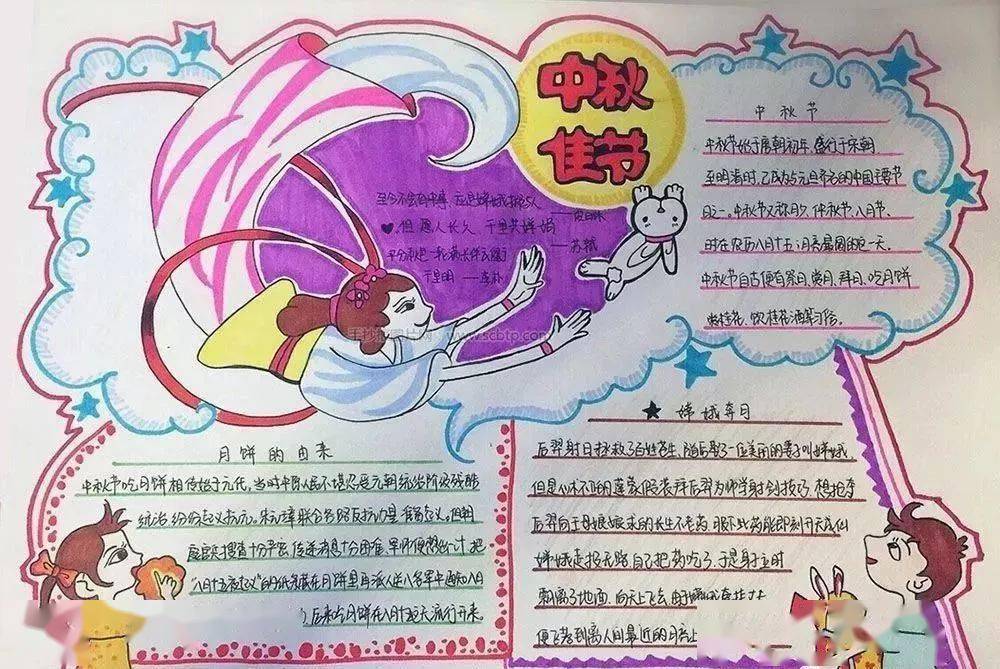 中秋
佳节
中秋节
中秋节始于唐朝初年,盛行于宋朝,
至明清时,已成为与元旦齐名的中国主要节
日之一。中秋节又称月夕、仲秋节、八月节
时在农历八月十五;月亮最圆的一天。
中秋节自古便有祭月、赏月、拜月、吃月饼
赏桂花、饮桂花酒等习俗。
但愿人长久,千里共婵娟
——苏轼
手抄报图片网 www.scbtp.com
月饼的由来
中秋节吃月饼相传始于元代,当时中原人民不堪忍受元朝统治阶级残酷
统治 纷纷起义抗元。朱元璋联合各路反抗力量 准备起义,但朝
庭官兵搜查十分严密,传递消息十分困难,军师便想出一计,把
"八月十五夜起义"的纸条藏在月饼里再派人送入各军中通知八月
后来吃月饼在八月十五这天流行开来。
嫦娥奔月
后羿射日拯救了百姓苍生,随后娶了一位美丽的妻子叫嫦娥,
但是心怀不轨的逢蒙假装拜后羿为师学射剑技巧,想抢夺
后羿向王母娘娘求的长生不老药,服下此药能即刻升天成仙
嫦娥走投无路,自己把药吃了,于是身子立时
飘离了地面,向天上飞去,由于
便飞落到离人间最近的月亮上